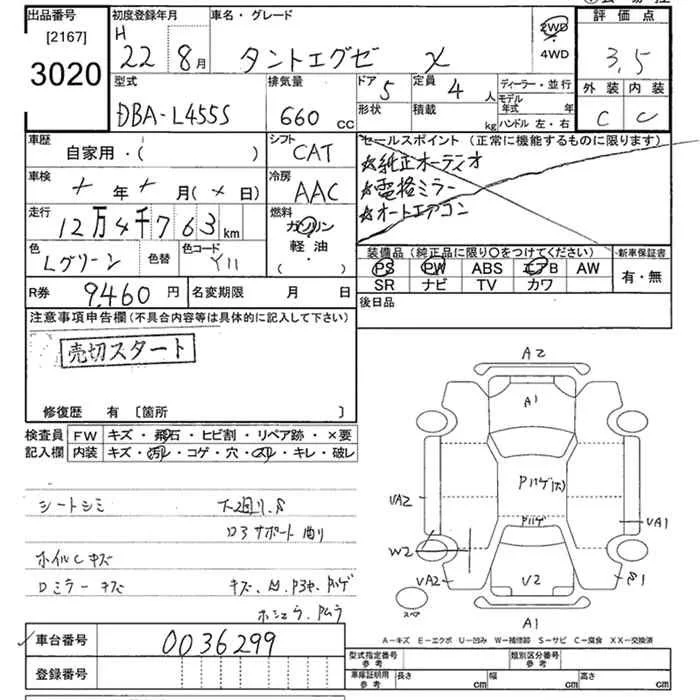 出品番号
[2167]
3020
初度登録年月
H 22年 8月
車名・グレード
タントエグゼ X
2WD
4WD
評価点
3.5
外装 内装
C C
型式
DBA-L455S
排気量
660 cc
ドア 5
形状
定員 4 人
積載 kg
ディーラー・並行
モデル年式 年
ハンドル 左・右
車歴
自家用・( )
シフト
CAT
車検
年 月( 日)
冷房
AAC
走行
12万4千763km
燃料
ガソリン
軽油
・( )
色
Lグリーン
色替
色コード
Y11
R券 9,460 円
名変期限 月 日
セールスポイント (正常に機能するものに限ります)
☆純正オーディオ
☆電格ミラー
☆オートエアコン
装備品(純正品に限り○をつけてください)
新車保証書
PS PW ABS エアB AW
SR ナビ TV カワ
有・無
後日品
注意事項申告欄(不具合内容等は具体的に記入して下さい)
売切スタート
修復歴 有 [箇所 ]
検査員
記入欄
FW キズ・飛石・ヒビ割・リペア跡・×要
内装 キズ・汚れ・コゲ・穴・スレ・キレ・破レ
シートシミ
下回り.S
ロアサポート曲り
ホイルCキズ
Dミラーキズ
車台番号
0036299
登録番号
A2
A1
VA2
VA1
W2
VA2
V2
S1
スペア
A1
A-キズ E-エクボ U-凹み W-補修跡 S-サビ C-腐食 XX-交換済
型式指定番号
参考
類別区分番号
参考
車庫証明用
参考
長さ cm 幅 cm 高さ cm